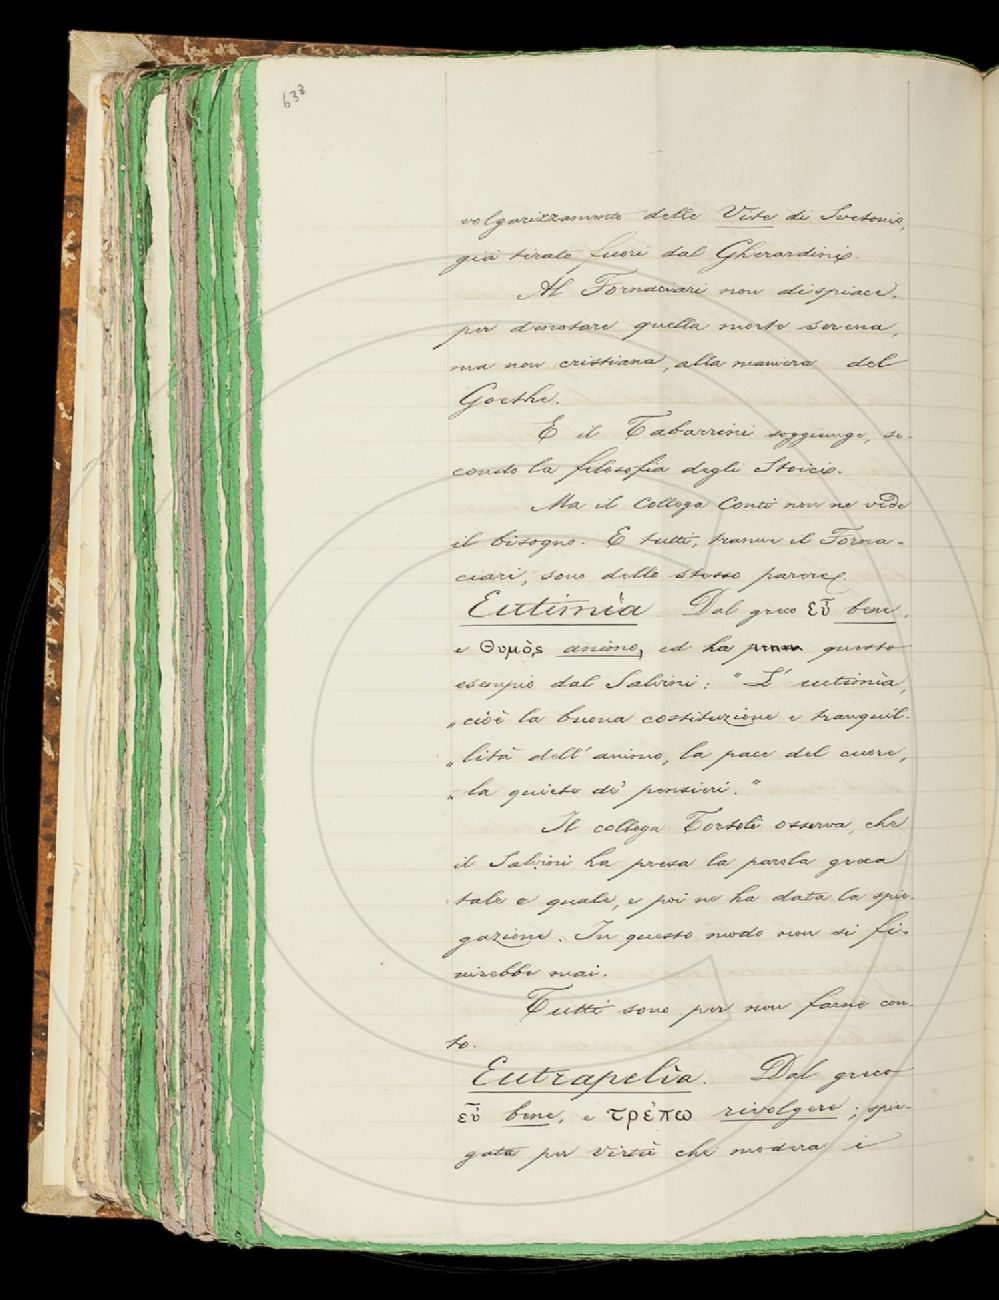 633
volgarizzamento delle Vite di Svetonio,
già tirato fuori dal Gherardini.
Al Fornaciari non dispiace,
per denotare quella morte serena,
ma non cristiana, alla maniera del
Goethe.
E il Tabarrini soggiunge, se-
condo la filosofia degli Stoici.
Ma il Collega Conti non ne vede
il bisogno. E tutti, tranne il Forna-
ciari, sono dello stesso parere.
Eutimìa. Dal greco εὖ bene,
e θυμὸς animo, ed ha questo
esempio dal Salvini: "L'eutimìa,
„cioè la buona costituzione e tranquil-
„lità dell'animo, la pace del cuore,
„la quiete de' pensieri."
Il collega Tortoli osserva, che
il Salvini ha presa la parola greca
tale e quale, e poi ne ha data la spie-
gazione. In questo modo non si fi-
nirebbe mai.
Tutti sono per non farne con-
to.
Eutrapelìa. Dal greco
εὖ bene, e τρέπω rivolgere; spie-
gata per Virtù che modera i